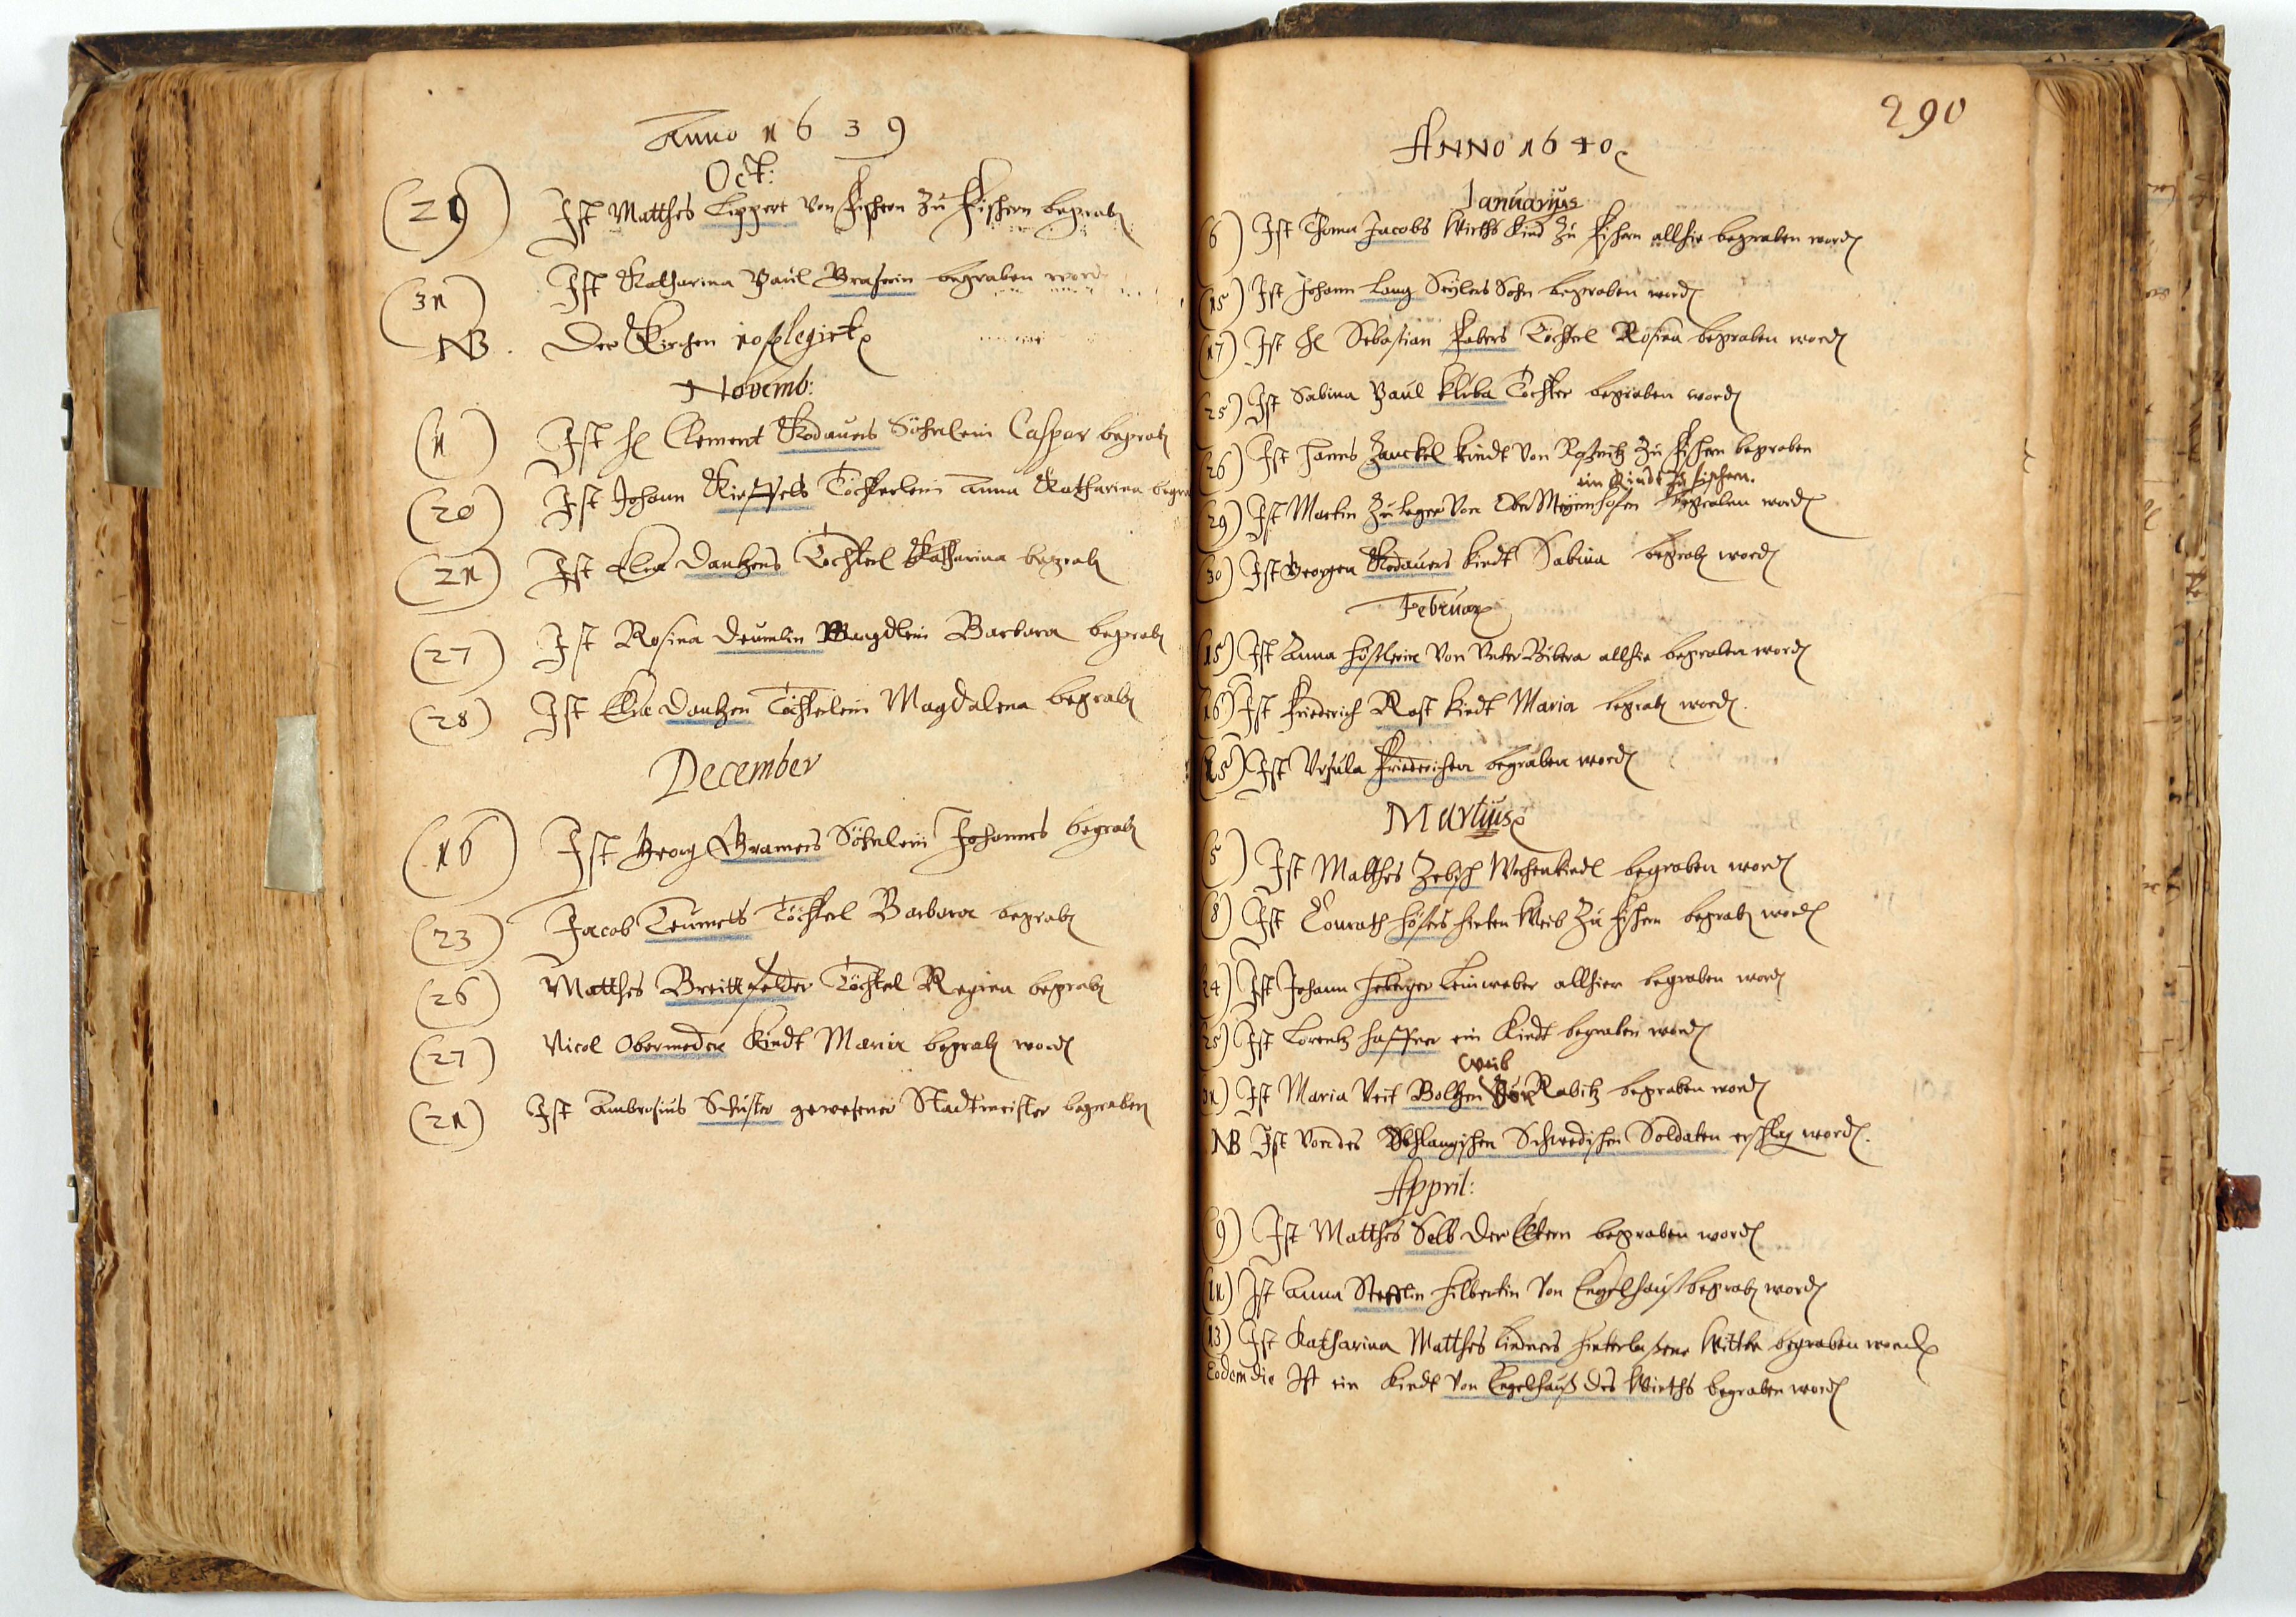 Anno 1639
Oct:
(29) Ist Matthes Lippert von Fischern zu Fischern begrab
(31) Ist Katharina Paul Graserin begraben word
NB. Der Kirchen
Novemb:
(1) Ist H Clement Kodauers Söhnlein Caspar begrab
(20) Ist Johann Töchterlein Anna Katharina begra
(21) Ist Elia Dantzens Töchterl Katharina begrab
(27) Ist Rosina Magdlein Barbara begrab
(28) Ist Elia Dantzen Töchterlein Magdalena begrab
December
(16) Ist Georg Gramers Söhnlein Johannes begrab
(23) Jacob Töchterl Barbara begrab
(26) Matthes Breittfelder Töchterl Regina begrab
(27) Nicol Obermeder Kindt Maria begrab word
(21) Ist Ambrosius Schuster gewesener Stadtmeister begraben
290
ANNO 1640
Januarius
6) Ist Thoma Jacobs Wirths Kind zu Fischern allhie begraben word
(15) Ist Johann Lang Seylers Sohn begraben word
(17) Ist H Sebastian Fabers Töchterl Rosina begraben word
(25) Ist Sabina Paul Tochter begraben word
(26) Ist Hanns Zanckel Kindt von zu Fischern begraben
ein Kindt zu Fischern.
(29) Ist Martin von Ober begraben word
(30) Ist Georgen Kodauers Kindt Sabina begrab word
Februar
(15) Ist Anna von Unter allhie begraben word
(16) Ist Friederich Rost Kindt Maria begrab word
(25) Ist Ursula Friederichen begraben word
Martius
5) Ist Matthes Wochenkindl begraben word
(8) Ist Conrath Höfers Hirten Weib zu Fischern begrab word
24) Ist Johann Heberger Leinweber allhier begraben word
25) Ist Lorentz ein Kindt begraben word
Weib
31) Ist Maria Veit von Rabitz begraben word
NB Ist von des Schwedischen Soldaten erschlag word.
Appril:
(9) Ist Matthes Selb der Eltern begraben word
(11) Ist Anna von Engelhauß begrab word
(13) Ist Katharina Matthes Lindners hinterlaßene Wittbe begraben word
Eodem die Ist ein Kindt von Engelhauß des Wirths begraben word